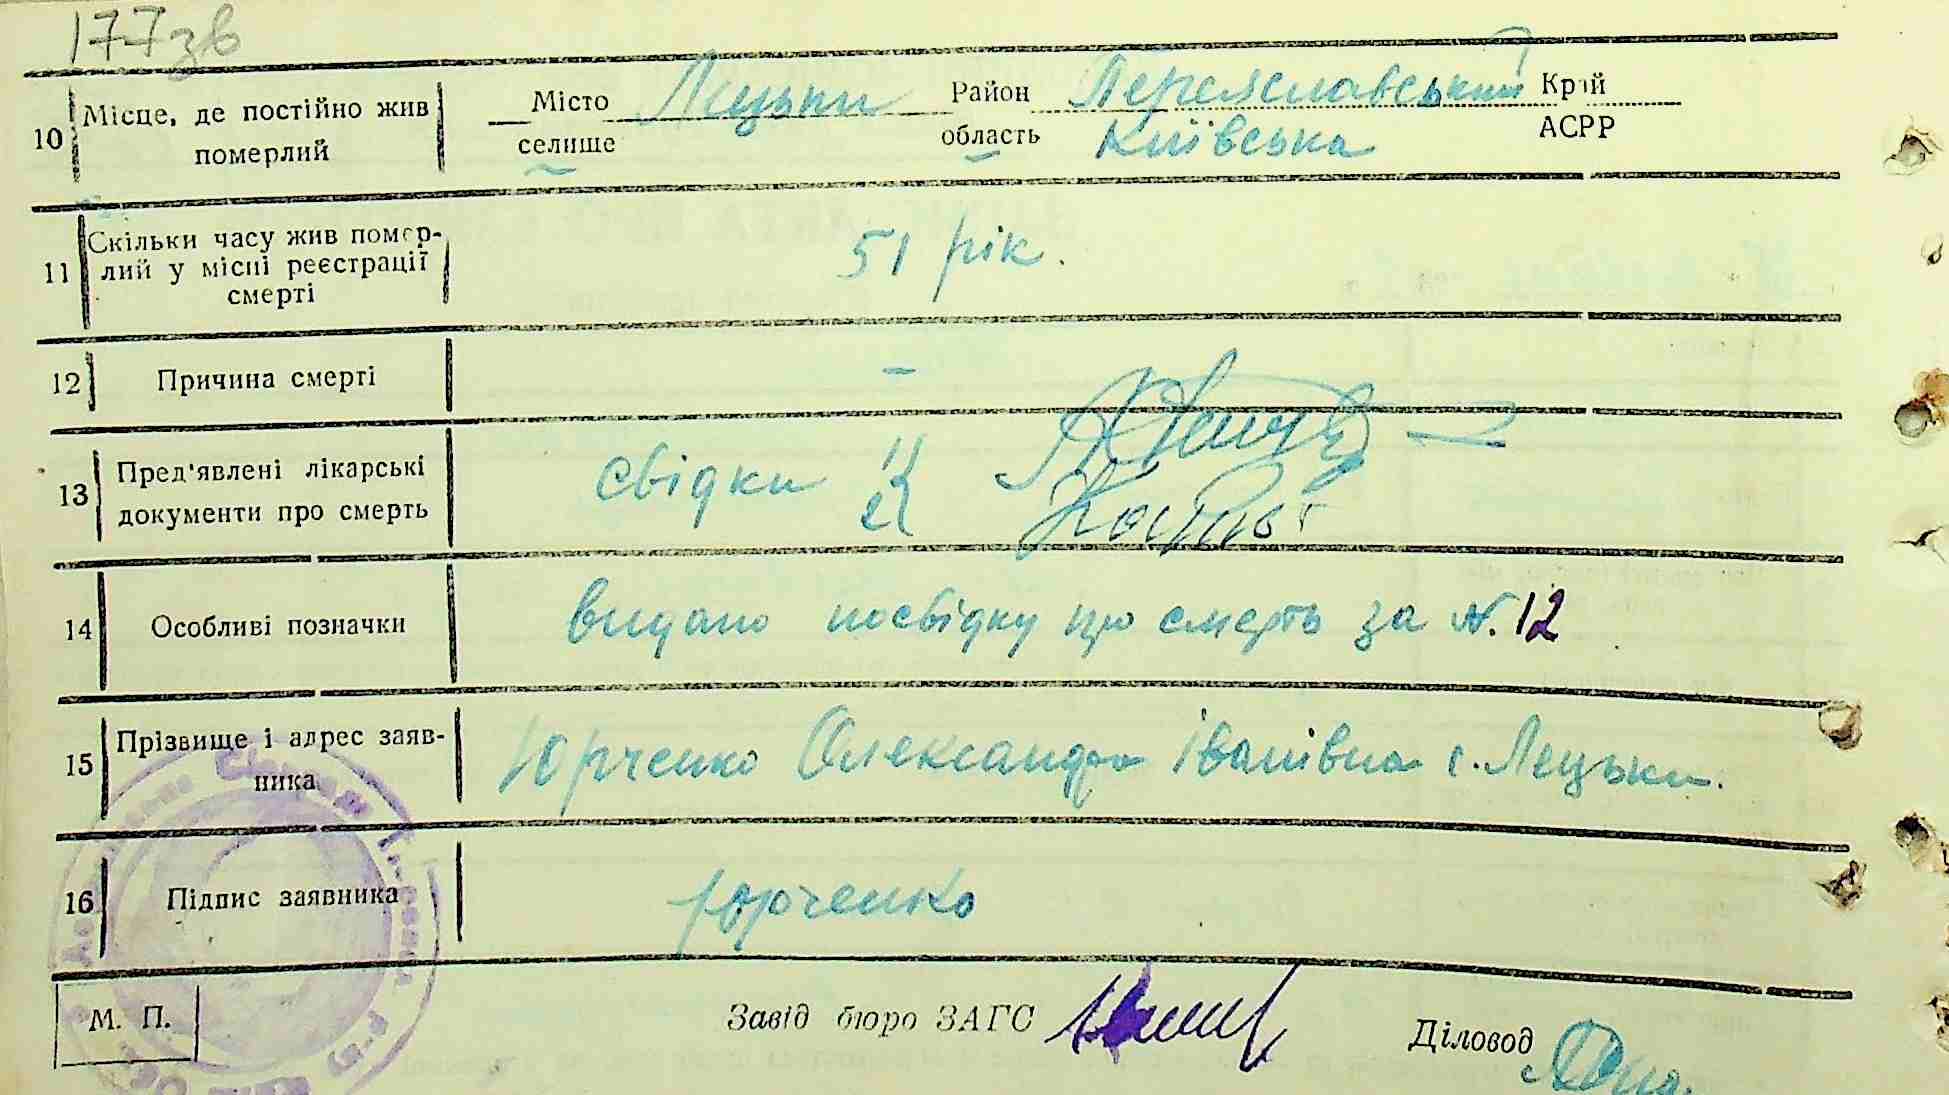 177зв
10 Місце, де постійно жив померлий Місто селище Лецьки Район область Переяславський Київська Край АСРР
11 Скільки часу жив помер-
лий у місці реєстрації
смерті 51 рік.
12 Причина смерті –
13 Пред'явлені лікарські
документи про смерть свідки 1 2
14 Особливі позначки видано посвідку про смерть за №. 12
15 Прізвище і адрес заяв-
ника Юрченко Олександра Іванівна с. Лецьки.
16 Підпис заявника Юрченко
М. П. Завід бюро ЗАГС Діловод